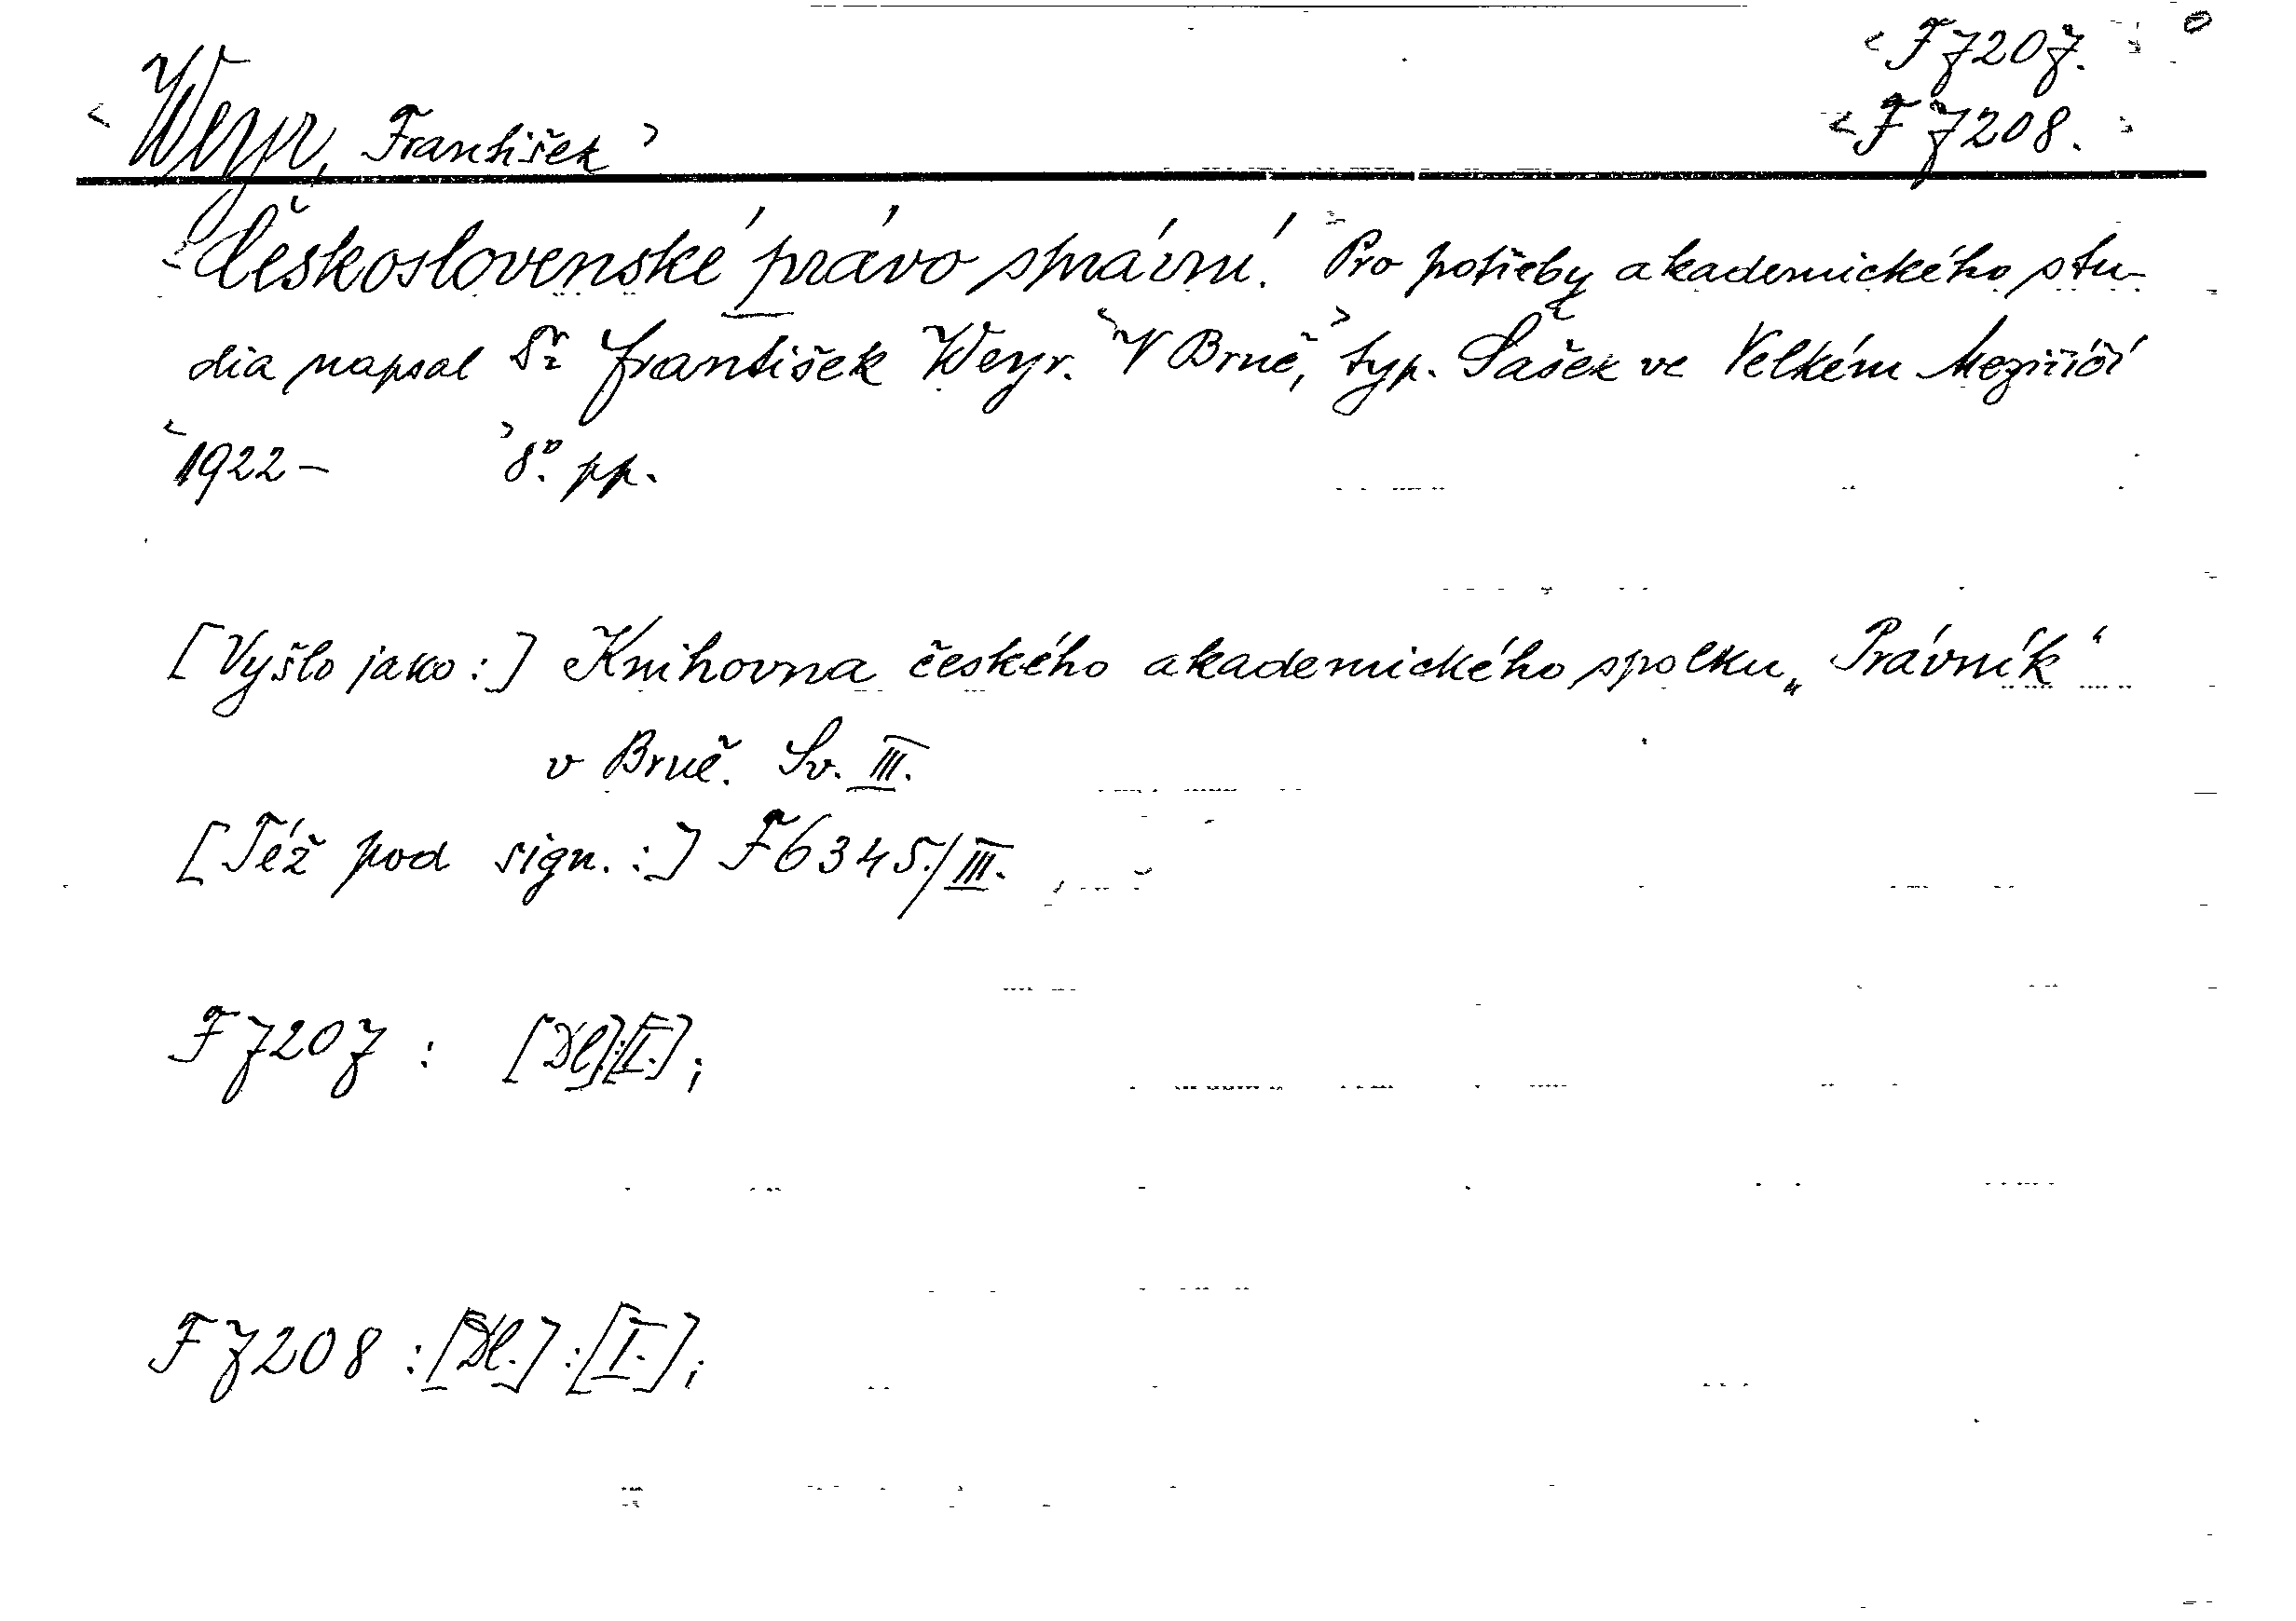 F 7207.
Weyr, František
F 7208.
Československé právo správní. Pro potřeby akademického stu-
dia napsal Dr František Weyr. V Brně, typ. Šašek ve Velkém Meziříčí
1922– 8º. pp.
[Vyšlo jako:] Knihovna českého akademického spolku „Právník“
v Brně. Sv. III.
[Též pod sign.:] F 6345./III.
F 7207 : [Dl]:[I.];
F 7208 : [Dl.] : [I.];